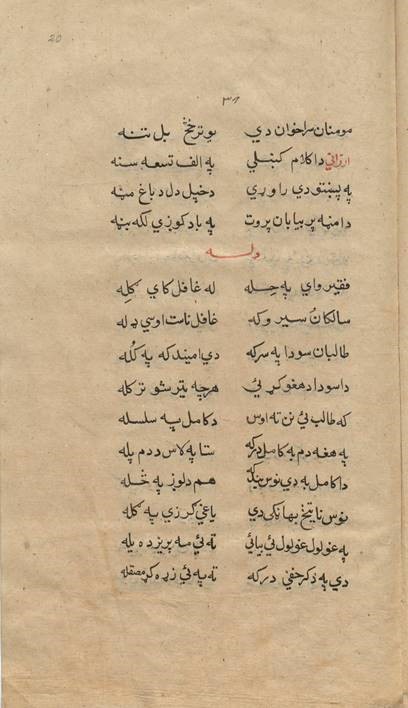 20
۳۹
مومنان سراخوان دي يو تر څنګ بل تنه
ارزاني دا کلام کښلي په الف تسعه سنه
په پښتو دي راوړي دخپل دل د باغ مېنه
دا منه پر بيابان پروت په باد کوزي لکه بڼه
وله
فقير وای په حله له غافل کاي کله
سالکان سير وکه غافل نات اوسي دله
طالبان سودا په سرکه دي اميند که په کله
دا سودا دهغو کړ ئي هرچه تېر شو تر کله
که طالب ئي نن ته اوس دکامل په سلسله
په هغه دم به کامل درکه ستا په لاس ددم پله
دا کامل به دي نوس هم دلوز په څله
نوس نا بهانکی دي ياغي کرزي په کله
په غولول غولول ئي بيائي ته ئي مه پريزده يله
دي په ذکر خفي درکه ته په ئي زړه کړ مصقله